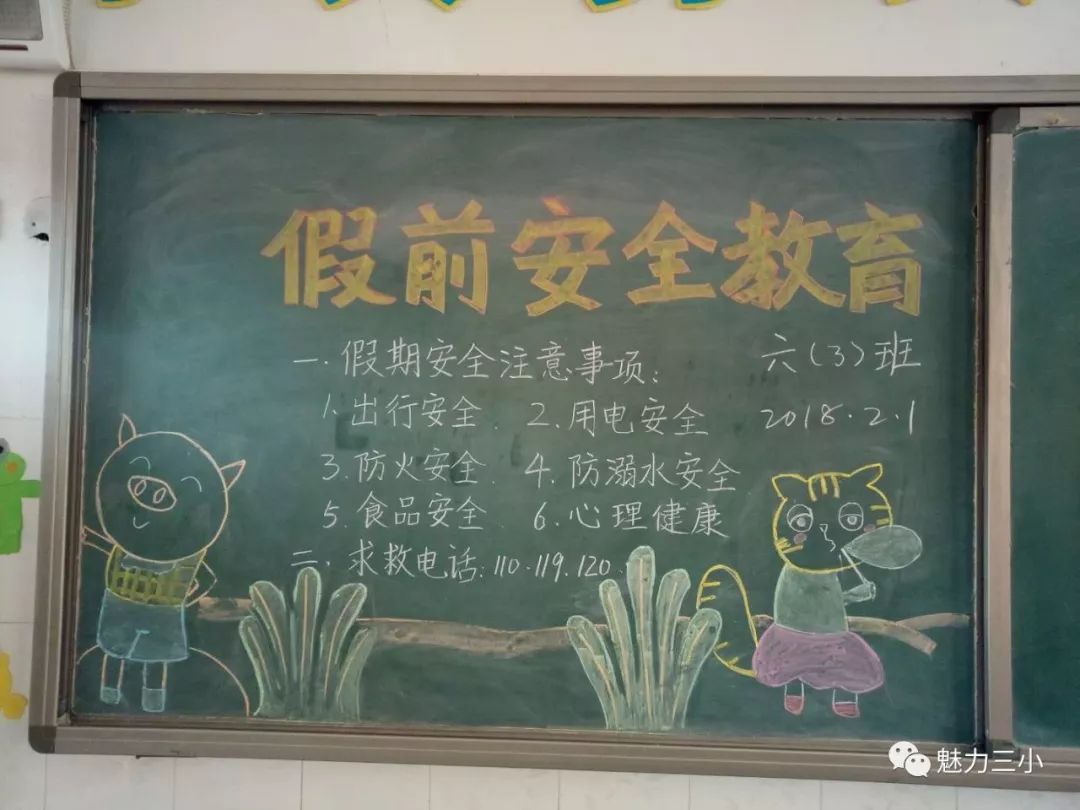 假前安全教育
一.假期安全注意事项:
六(3)班
1.出行安全. 2.用电安全
2018.2.1
3.防火安全. 4.防溺水安全
5.食品安全. 6.心理健康
二.求救电话:110.119.120.
魅力三小